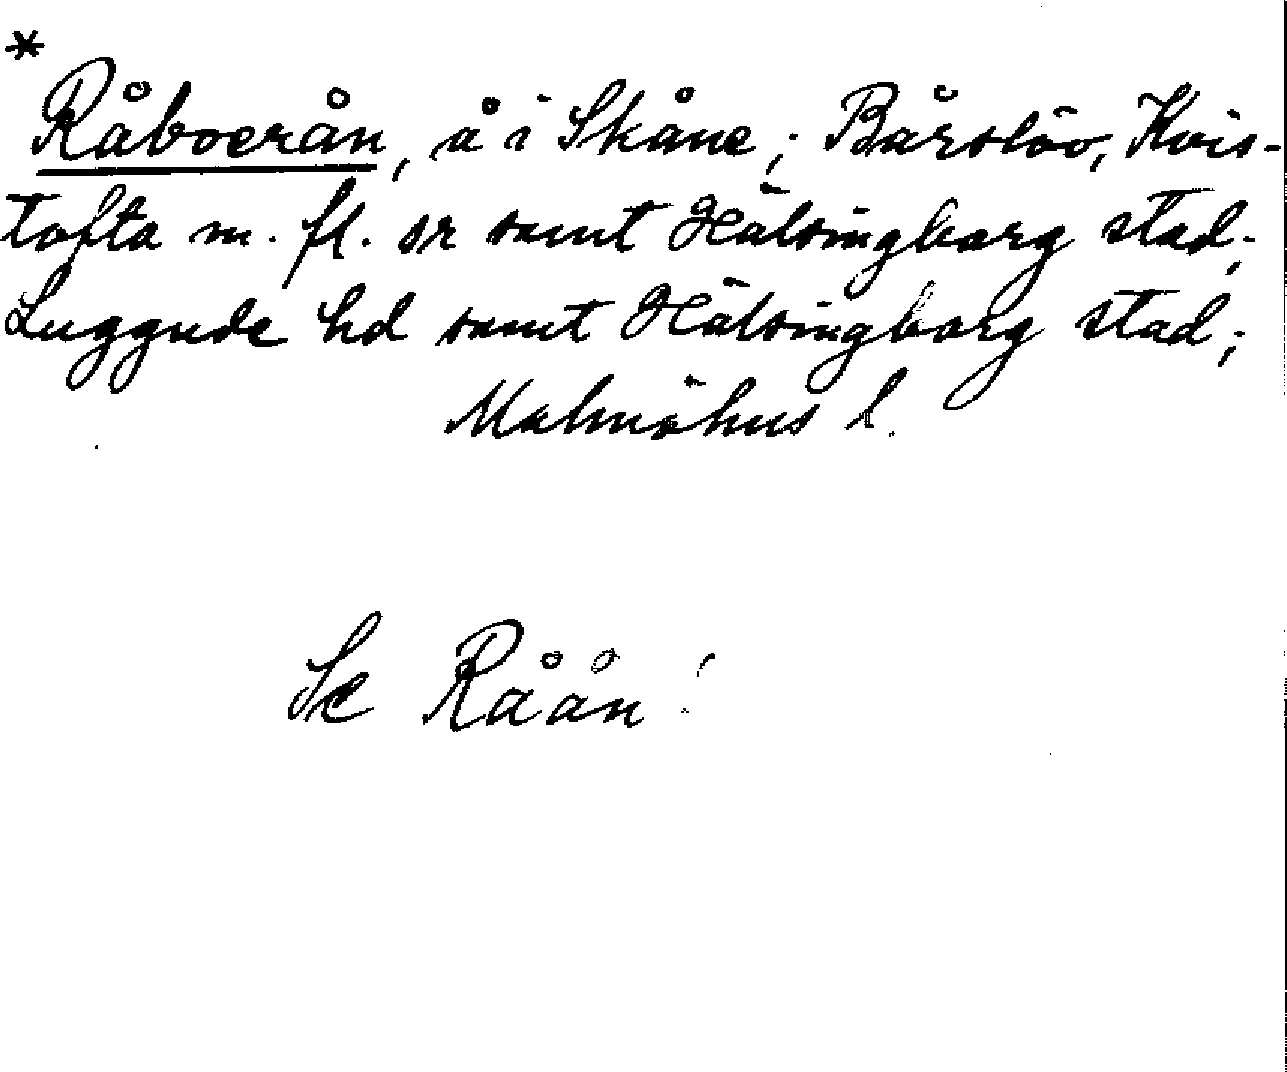 *
Råboerån, å i Skåne; Bårslöv, Kvis-
tofta m. fl. sr samt Hälsingborg stad;
Luggude hd samt Hälsingborg stad;
Malmöhus l.
Se Råån!